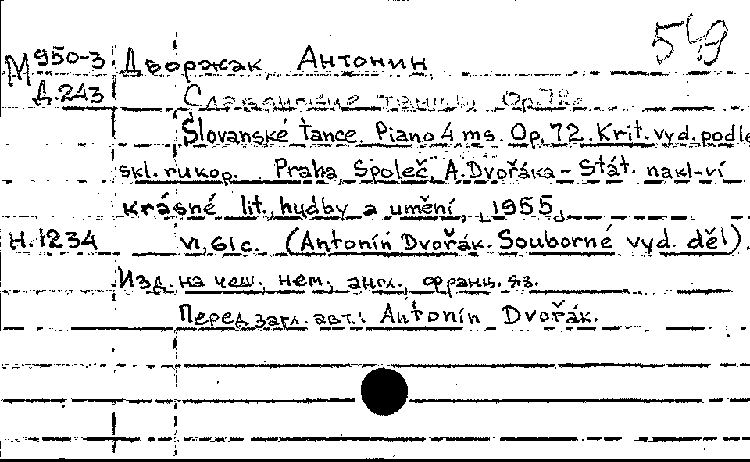 549
М 950-3 Дворжак, Антонин
Д.243 Славянские танцы Op.72.
Slovanské tance. Piano 4 ms. Op. 72. Krit. vyd. podle
skl. rukop. Praha, Společ. A. Dvořáka - Stát. nakl-ví
krásné lit., hudby a umění, 1955,
Н.1234 VI, 61 с. (Antonín Dvořák. Souborné vyd. děl).
Изд. на чеш., нем., англ., франц. яз.
Перед загл. авт.: Antonín Dvořák.